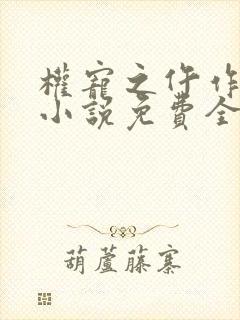 權寵之仵作
小說免費全
葫蘆藤寨